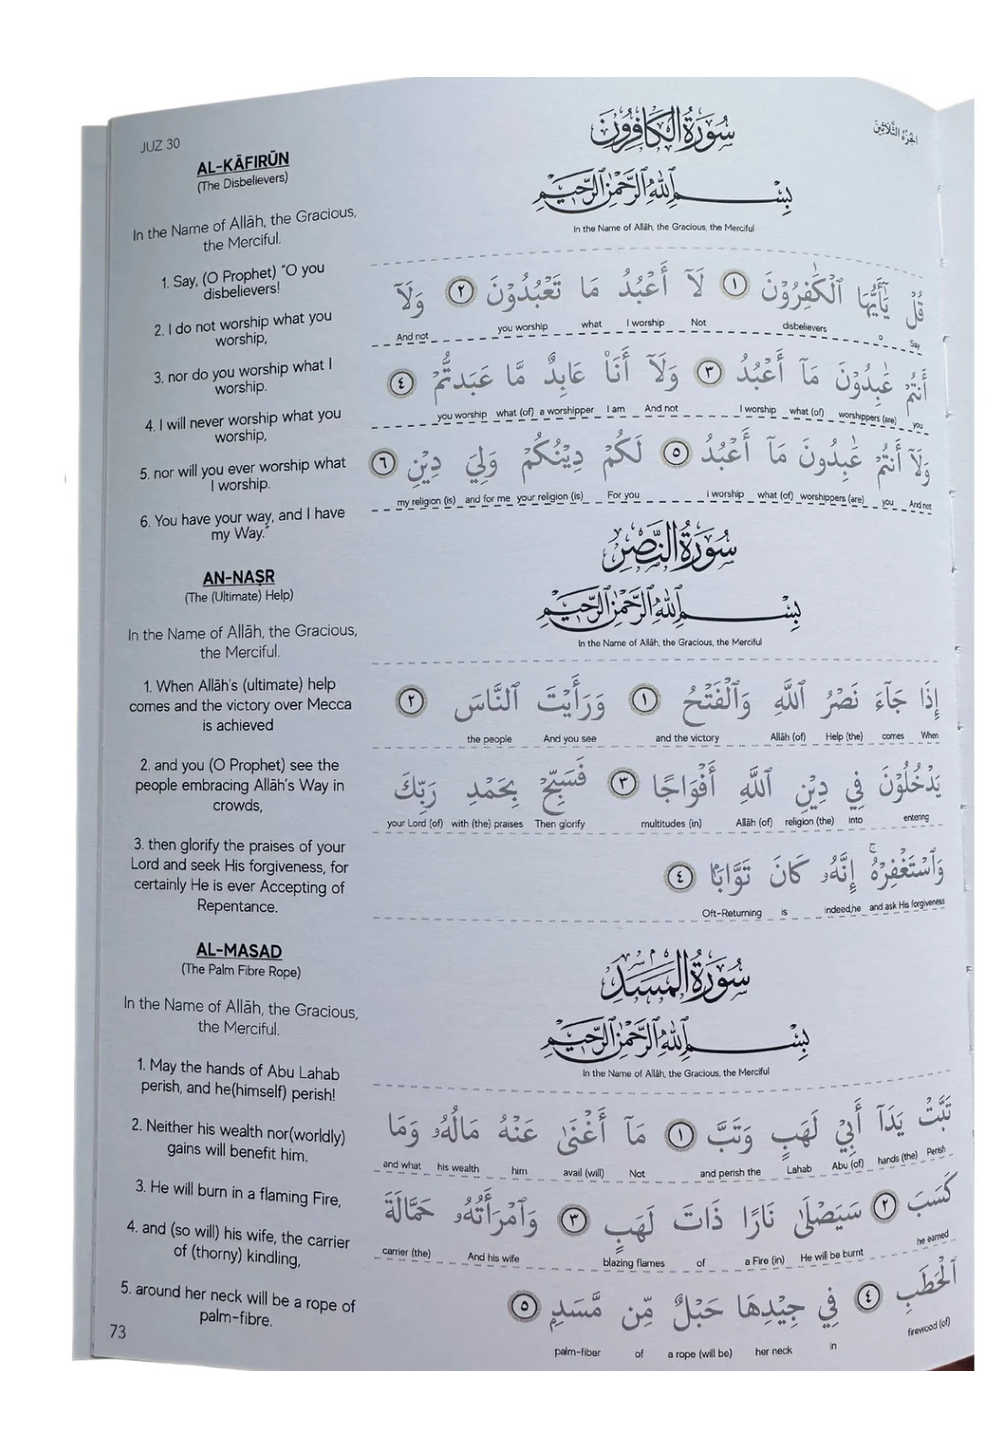 JUZ 30
AL-KĀFIRŪN
(The Disbelievers)
In the Name of Allāh, the Gracious,
the Merciful.
1. Say, (O Prophet) "O you
disbelievers!
2. I do not worship what you
worship,
3. nor do you worship what I
worship.
4. I will never worship what you
worship,
5. nor will you ever worship what
I worship.
6. You have your way, and I have
my Way."
AN-NAṢR
(The (Ultimate) Help)
In the Name of Allāh, the Gracious,
the Merciful.
1. When Allāh's (ultimate) help
comes and the victory over Mecca
is achieved
2. and you (O Prophet) see the
people embracing Allāh's Way in
crowds,
3. then glorify the praises of your
Lord and seek His forgiveness, for
certainly He is ever Accepting of
Repentance.
AL-MASAD
(The Palm Fibre Rope)
In the Name of Allāh, the Gracious,
the Merciful.
1. May the hands of Abu Lahab
perish, and he(himself) perish!
2. Neither his wealth nor(worldly)
gains will benefit him.
3. He will burn in a flaming Fire,
4. and (so will) his wife, the carrier
of (thorny) kindling,
5. around her neck will be a rope of
palm-fibre.
73
الجُزْءُ الثَّلَاثِينَ
سُورَةُ الكَافِرُونَ
بِسْمِ اللهِ الرَّحْمٰنِ الرَّحِيْمِ
In the Name of Allāh, the Gracious, the Merciful
قُلْ يَٰٓأَيُّهَا ٱلْكَٰفِرُوْنَ ١ لَآ أَعْبُدُ مَا تَعْبُدُوْنَ ٢ وَلَآ
And not you worship what I worship Not disbelievers O Say
أَنتُمْ عَٰبِدُوْنَ مَآ أَعْبُدُ ٣ وَلَآ أَنَا۠ عَابِدٌ مَّا عَبَدتُّمْ ٤
you worship what (of) a worshipper I am And not I worship what (of) worshippers (are) you
وَلَآ أَنتُمْ عَٰبِدُونَ مَآ أَعْبُدُ ٥ لَكُمْ دِيْنُكُمْ وَلِيَ دِيْنِ ٦
my religion (is) and for me your religion (is) For you I worship what (of) worshippers (are) you And not
سُورَةُ النَّصْرِ
بِسْمِ اللهِ الرَّحْمٰنِ الرَّحِيْمِ
In the Name of Allāh, the Gracious, the Merciful
إِذَا جَآءَ نَصْرُ ٱللَّهِ وَٱلْفَتْحُ ١ وَرَأَيْتَ ٱلنَّاسَ ٢
the people And you see and the victory Allāh (of) Help (the) comes When
يَدْخُلُوْنَ فِي دِيْنِ ٱللَّهِ أَفْوَاجًا ٣ فَسَبِّحْ بِحَمْدِ رَبِّكَ
your Lord (of) with (the) praises Then glorify multitudes (in) Allāh (of) religion (the) into entering
وَٱسْتَغْفِرْهُ ۚ إِنَّهُۥ كَانَ تَوَّابًۢا ٤
Oft-Returning is indeed,he and ask His forgiveness
سُورَةُ المَسَدِ
بِسْمِ اللهِ الرَّحْمٰنِ الرَّحِيْمِ
In the Name of Allāh, the Gracious, the Merciful
تَبَّتْ يَدَآ أَبِيْ لَهَبٍ وَتَبَّ ١ مَآ أَغْنَىٰ عَنْهُ مَالُهُۥ وَمَا
and what his wealth him avail (will) Not and perish the Lahab Abu (of) hands (the) Perish
كَسَبَ ٢ سَيَصْلَىٰ نَارًا ذَاتَ لَهَبٍ ٣ وَٱمْرَأَتُهُۥ حَمَّالَةَ
carrier (the) And his wife blazing flames of a Fire (in) He will be burnt he earned
ٱلْحَطَبِ ٤ فِي جِيْدِهَا حَبْلٌ مِّن مَّسَدٍ ٥
palm-fiber of a rope (will be) her neck in firewood (of)